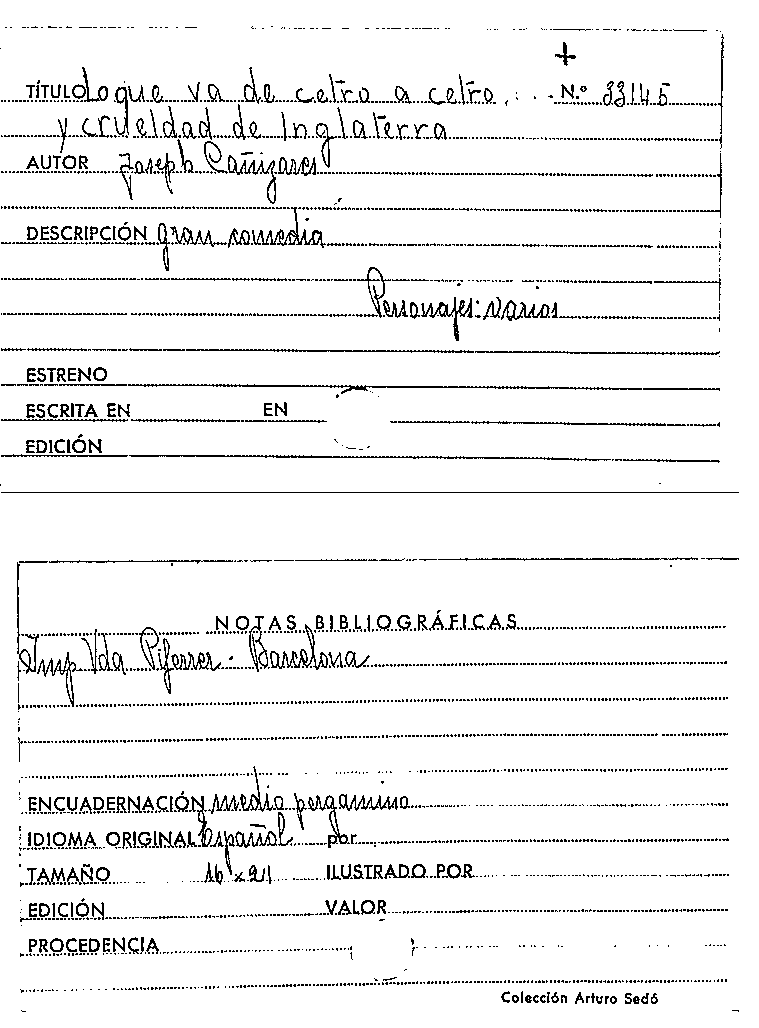 +
TÍTULO Lo que va de cetro a cetro, . . . N.º 33145
y crueldad de Inglaterra
AUTOR Joseph Cañizares
DESCRIPCIÓN gran comedia
Personajes: varios
ESTRENO
ESCRITA EN EN
EDICIÓN
NOTAS BIBLIOGRÁFICAS
Imp Vda Piferrer - Barcelona
ENCUADERNACIÓN medio pergamino
IDIOMA ORIGINAL Español por
TAMAÑO 16 x 21 ILUSTRADO POR
EDICIÓN VALOR
PROCEDENCIA
Colección Arturo Sedó